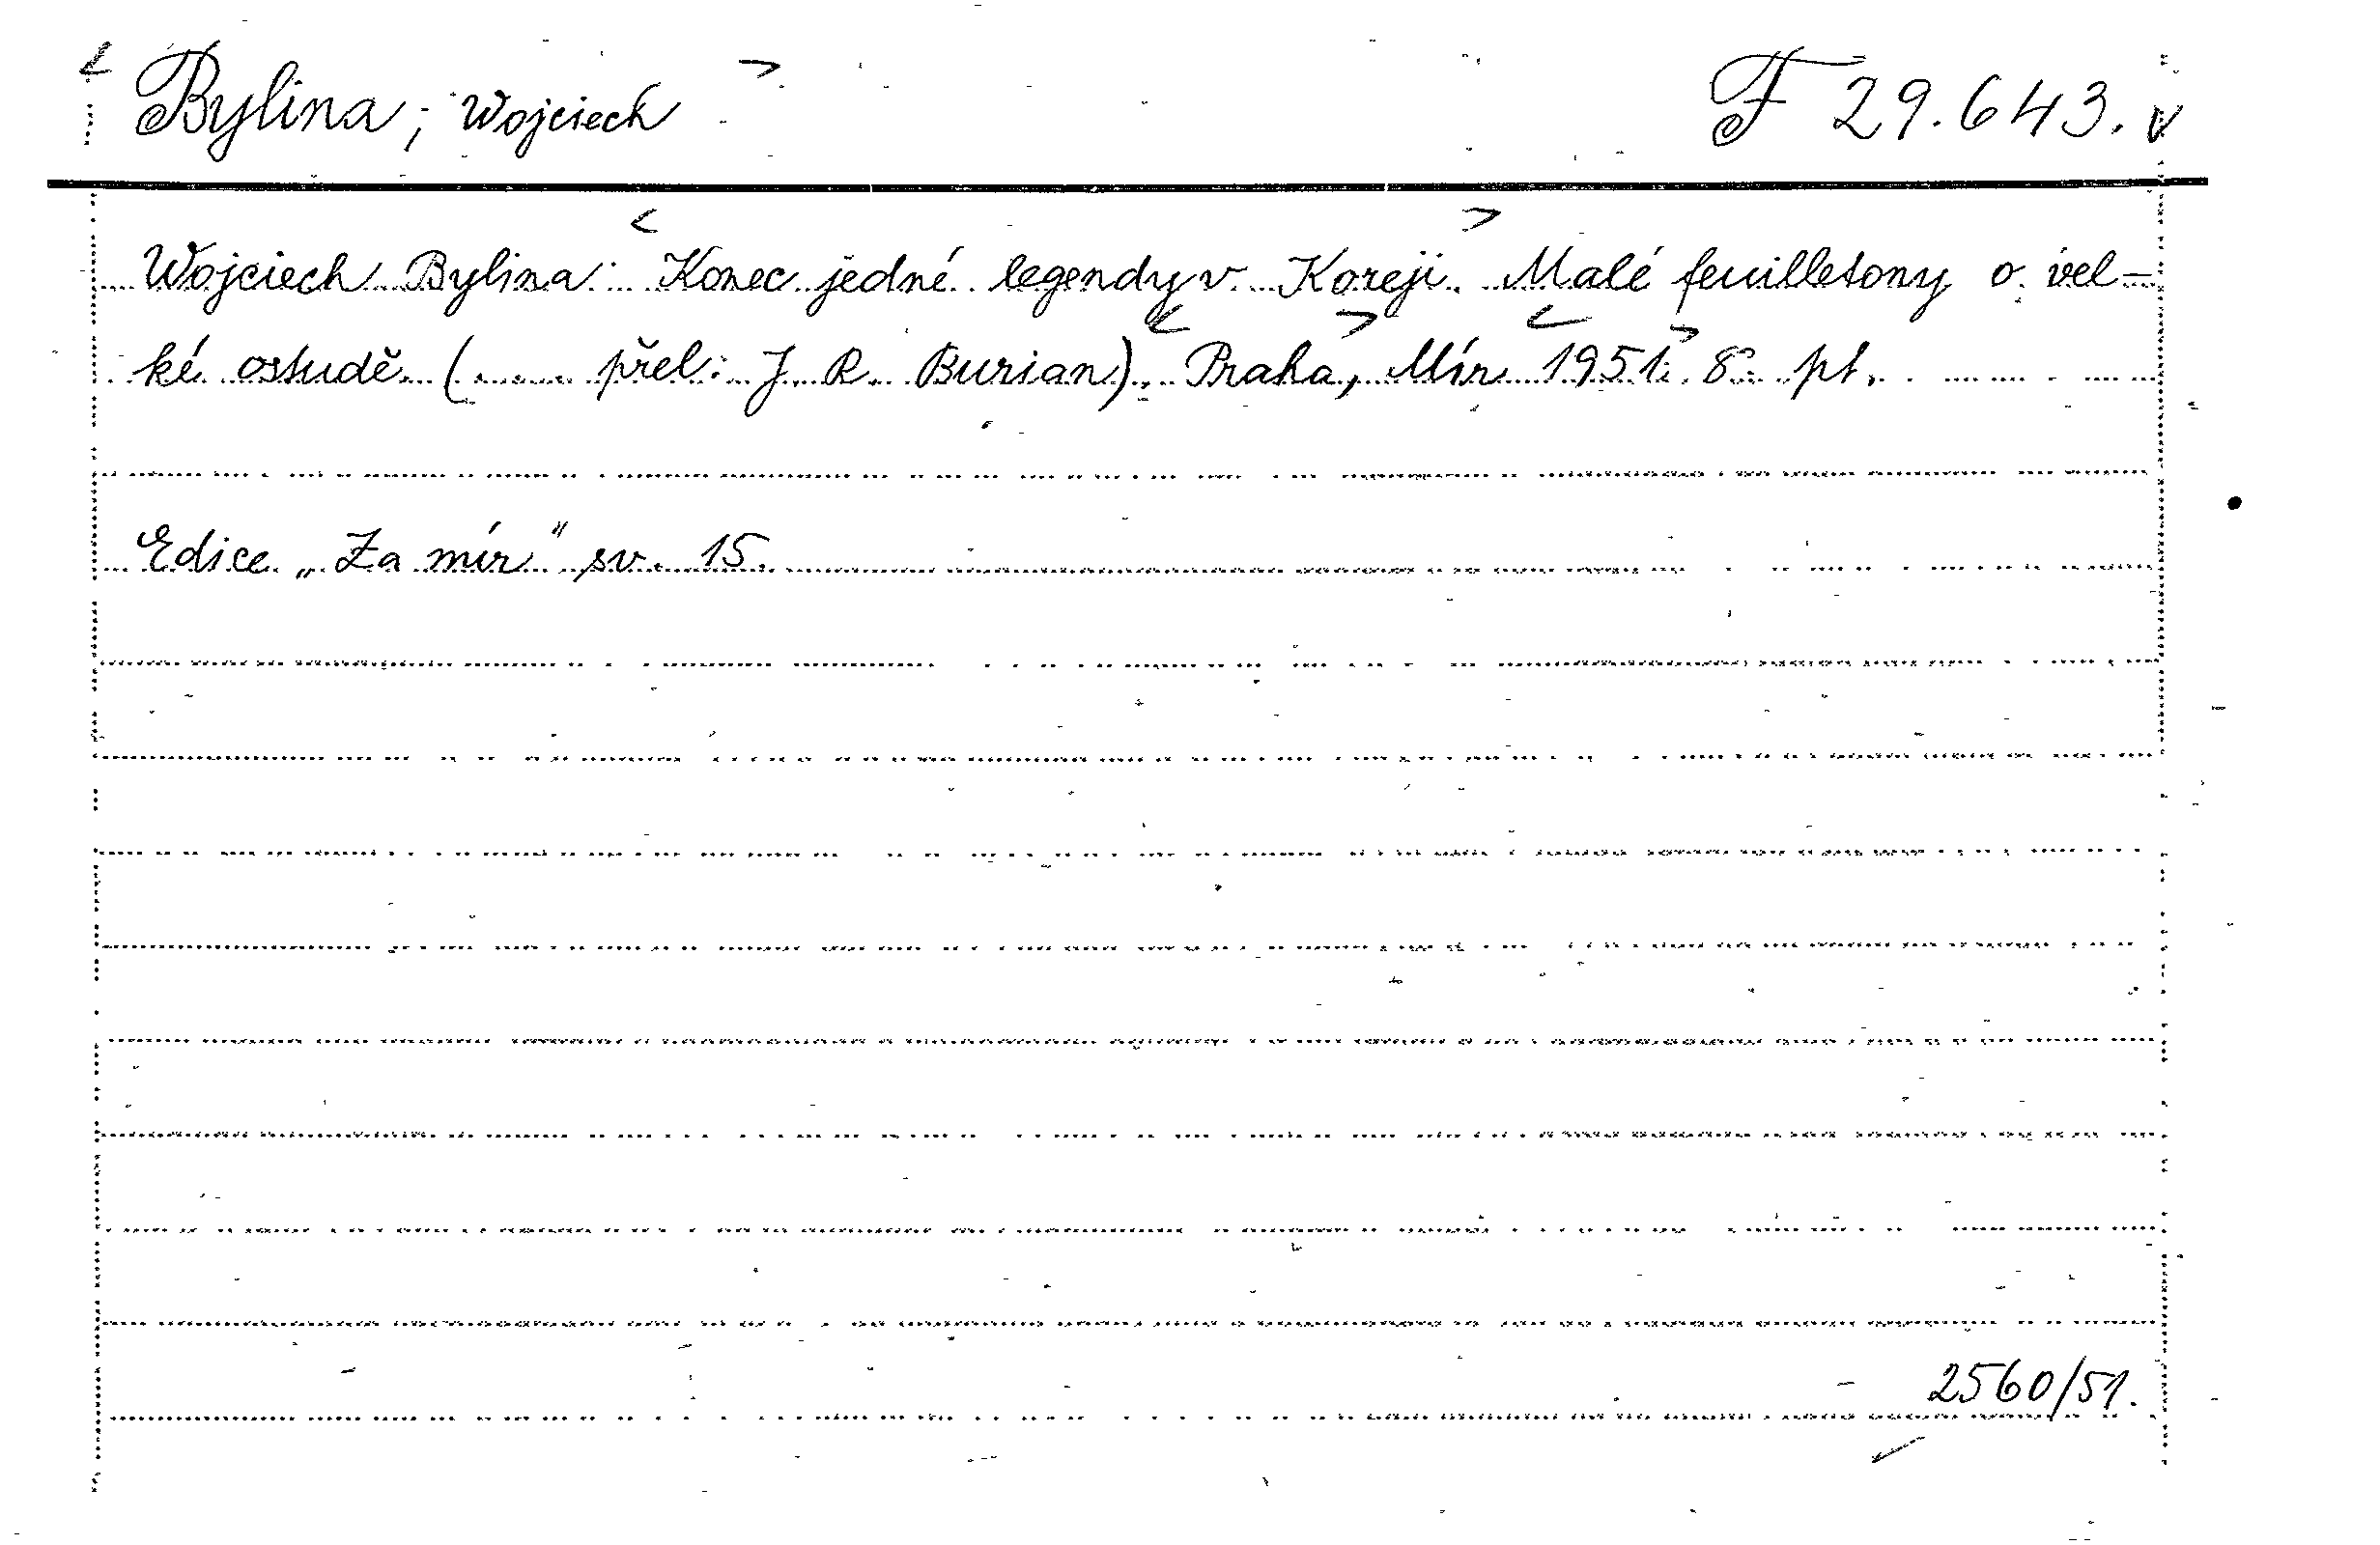 < Bylina, Wojciech > F 29.643. v
Wojciech Bylina: <Konec jedné legendy v Koreji.> Malé feuilletony o vel-
ké ostudě. (.... přel: J. R. Burian). <Praha,> Mír <1951.> 8°. pt.
Edice „Za mír" sv. 15.
2560/51.